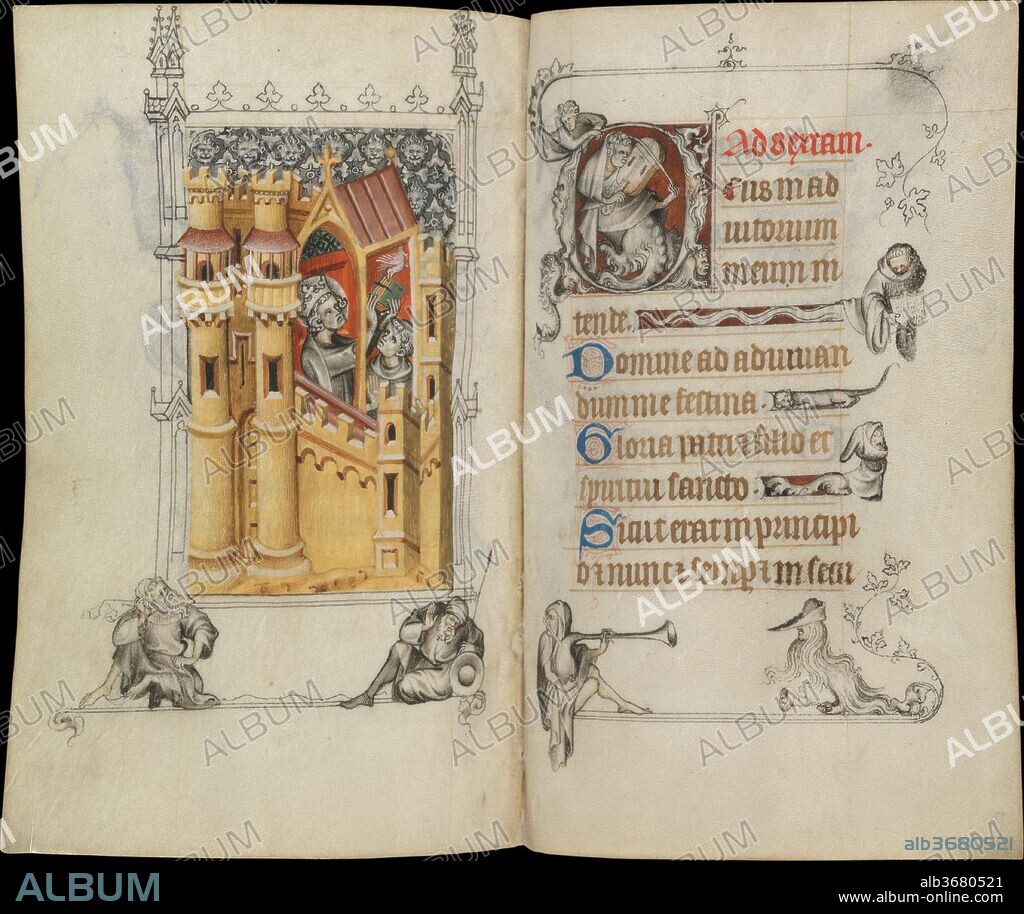 Ad sextam.
eus in ad
iutorium
meum in
tende.
Domine ad adiuuan
dum me festina.
Gloria patri & filio et
spiritui sancto.
Sicut erat in principi
o & nunc & semper & in secu
ALBUM
alb3680521
ALBUM
alb3680521
www.album-online.com